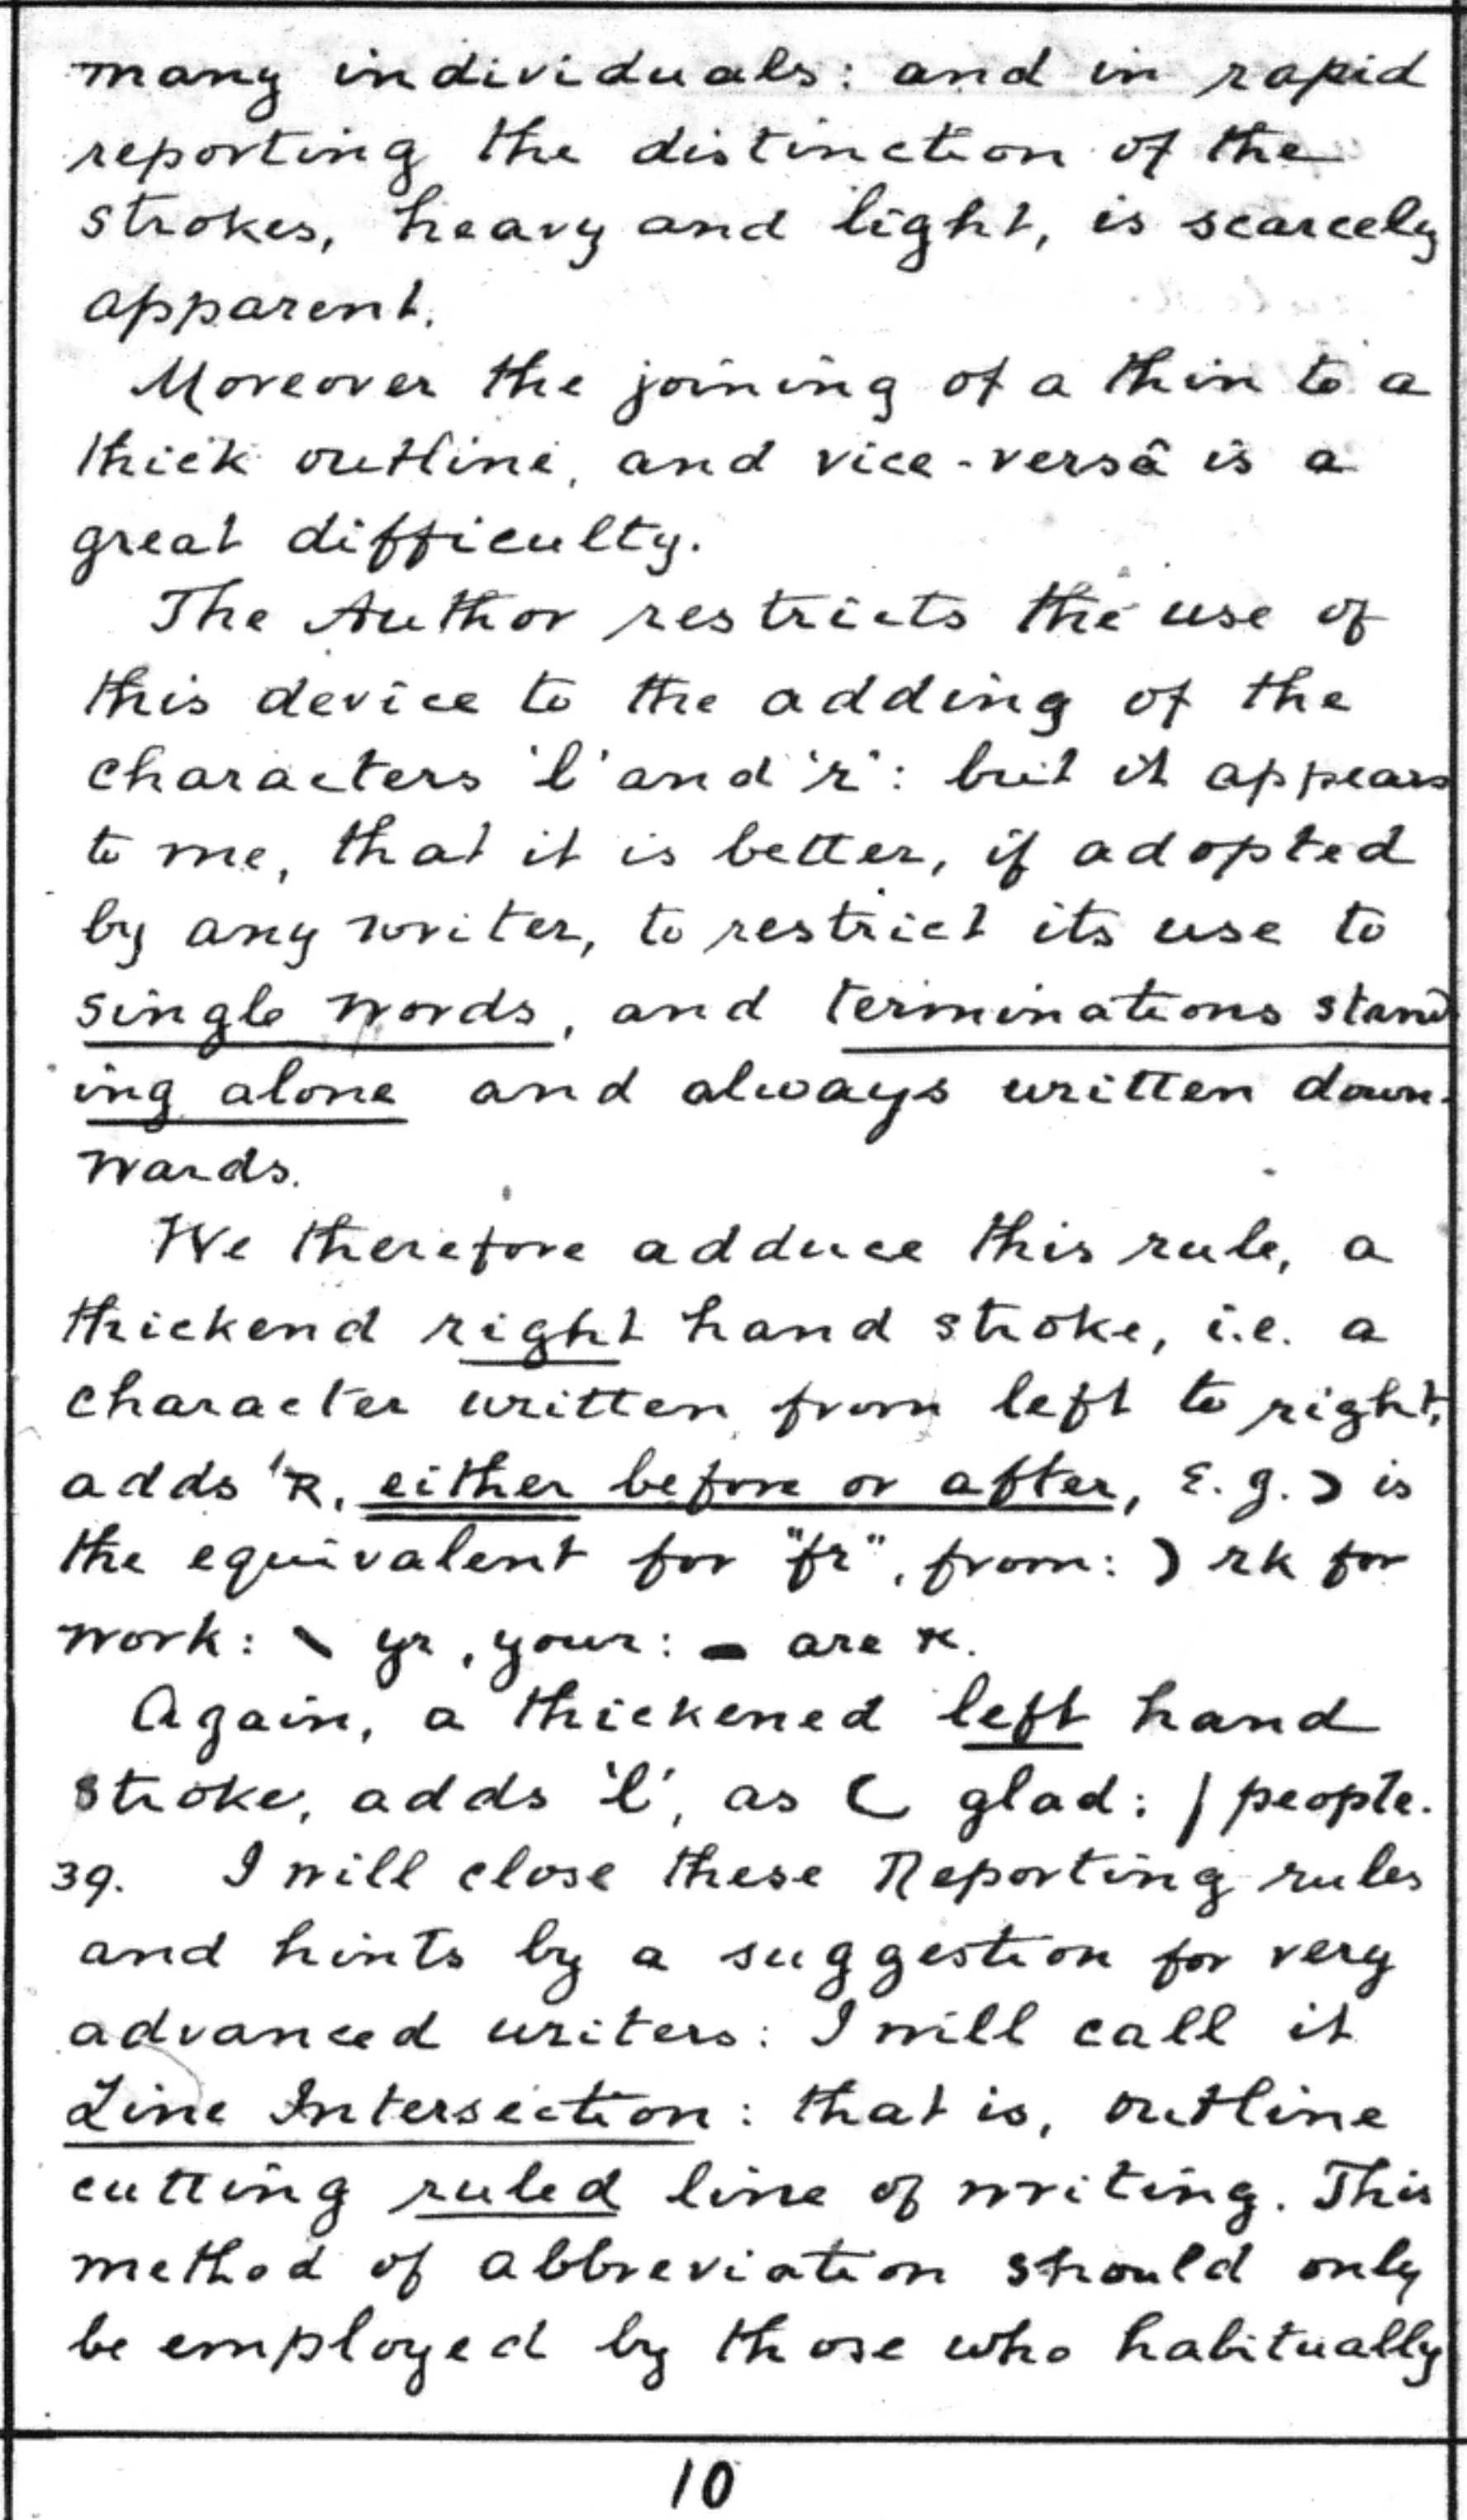 many individuals: and in rapid
reporting the distinction of the
strokes, heavy and light, is scarcely
apparent.
Moreover the joining of a thin to a
thick outline, and vice-versâ is a
great difficulty.
The Author restricts the use of
this device to the adding of the
characters 'l' and 'r': but it appears
to me, that it is better, if adopted
by any writer, to restrict its use to
single words, and terminations stand
ing alone and always written down-
wards.
We therefore adduce this rule, a
thickend right hand stroke, i.e. a
character written from left to right,
adds 'R, either before or after, E.g. is
the equivalent for "fr", from: ) rk for
work: \ yr, your: - are
Again, a thickened left hand
stroke, adds 'l', as glad: / people.
39. I will close these Reporting rules
and hints by a suggestion for very
advanced writers: I will call it
Line Intersection: that is, outline
cutting ruled line of writing. This
method of abbreviation should only
be employed by those who habitually
10